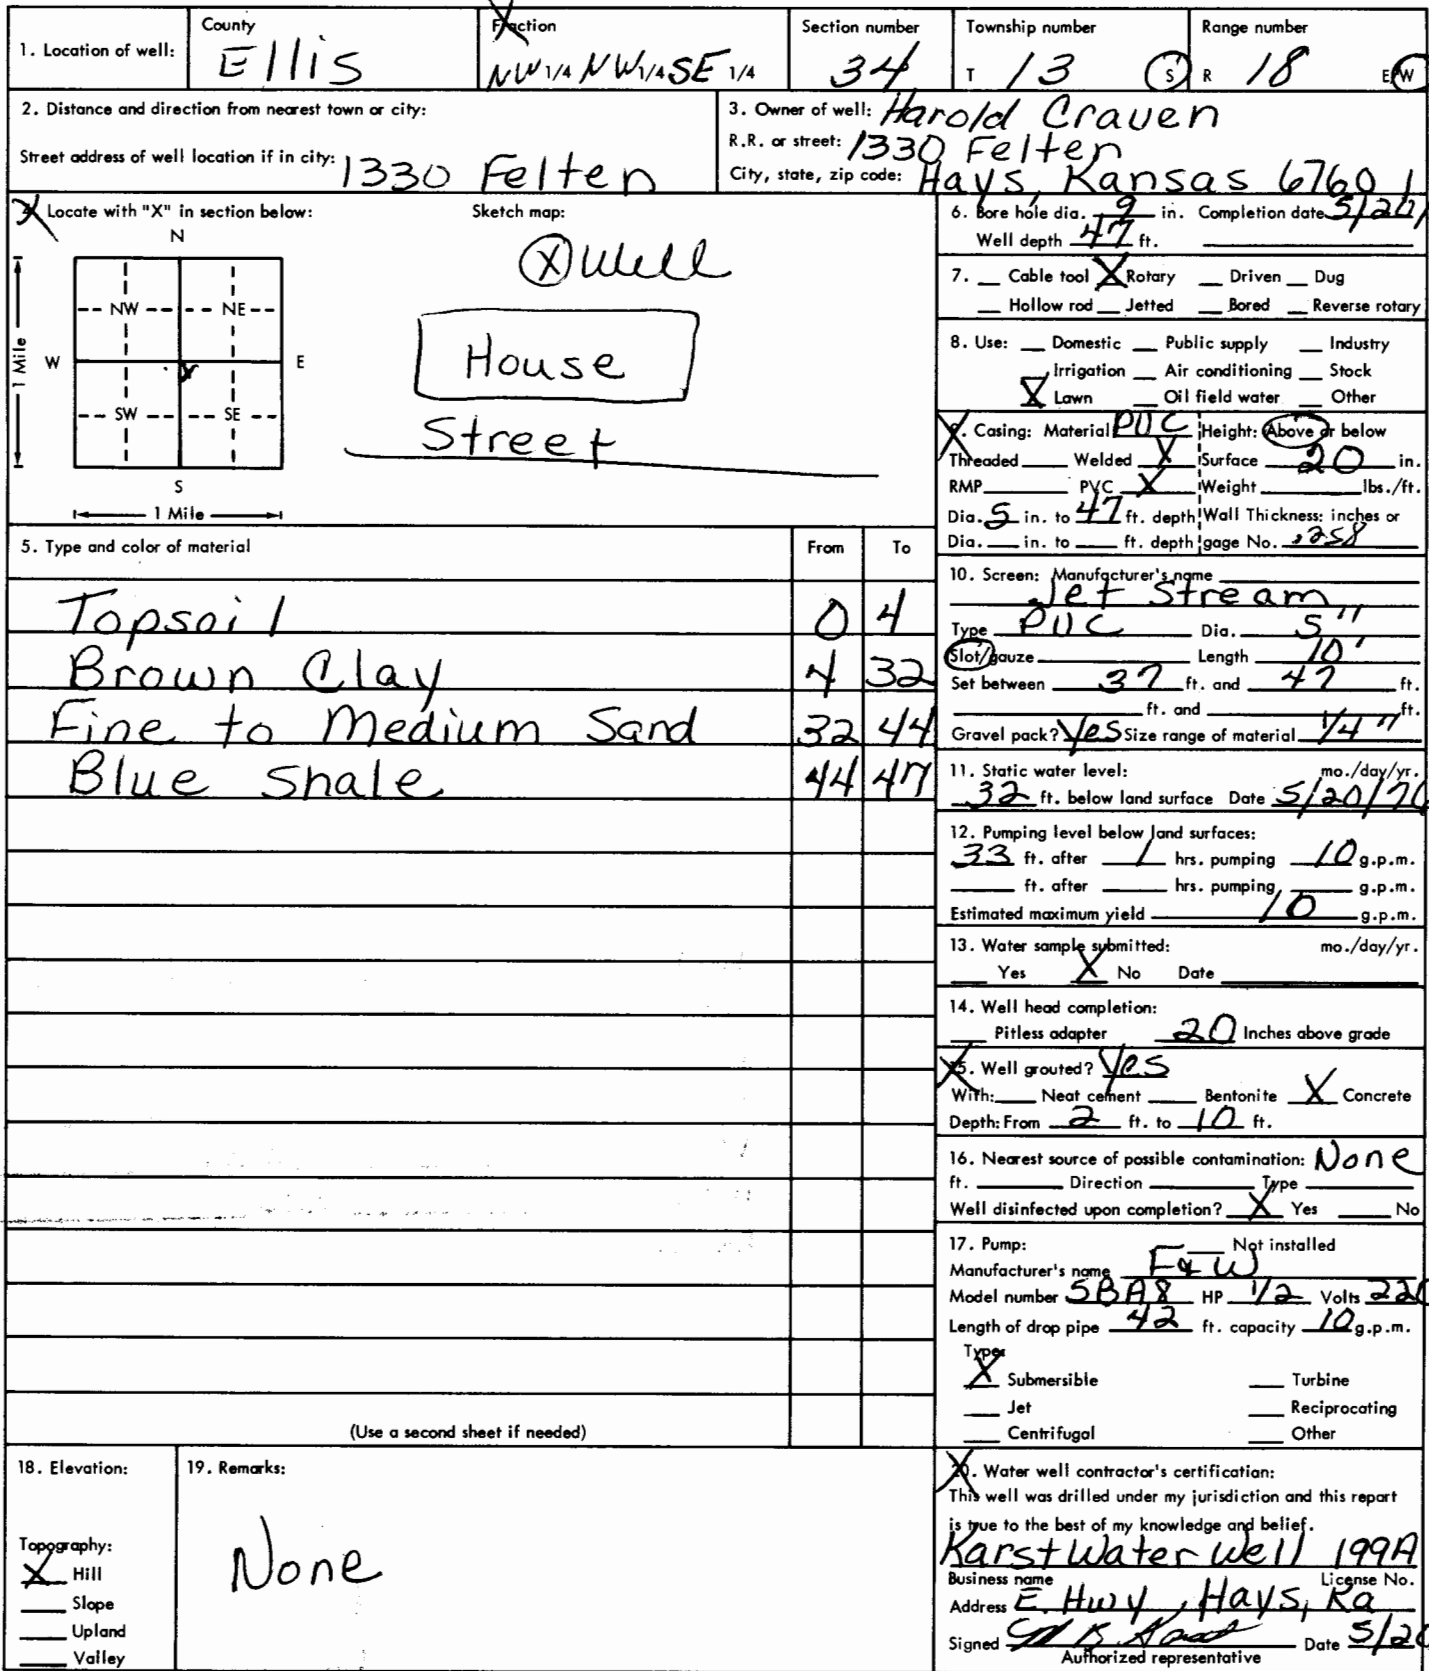 1. Location of well: County Ellis Fraction NW 1/4 NW 1/4 SE 1/4 Section number 34 Township number T 13 S Range number R 18 E/W
2. Distance and direction from nearest town or city:
Street address of well location if in city: 1330 Felten
3. Owner of well: Harold Craven
R.R. or street: 1330 Felten
City, state, zip code: Hays, Kansas 67601
4. Locate with "X" in section below:
N
NW NE
W E
X
SW SE
S
1 Mile
1 Mile
Sketch map:
X Well
House
Street
5. Type and color of material From To
Topsoil 0 4
Brown Clay 4 32
Fine to Medium Sand 32 44
Blue Shale 44 47
(Use a second sheet if needed)
6. Bore hole dia. 9 in. Completion date 5/20/
Well depth 47 ft.
7. Cable tool X Rotary Driven Dug
Hollow rod Jetted Bored Reverse rotary
8. Use: Domestic Public supply Industry
Irrigation Air conditioning Stock
X Lawn Oil field water Other
9. Casing: Material PVC Height: Above or below
Threaded Welded X Surface 20 in.
RMP PVC X Weight lbs./ft.
Dia. 5 in. to 47 ft. depth Wall Thickness: inches or
Dia. in. to ft. depth gage No. .258
10. Screen: Manufacturer's name
Jet Stream
Type PVC Dia. 5"
Slot/gauze Length 10'
Set between 37 ft. and 47 ft.
ft. and ft.
Gravel pack? Yes Size range of material 1/4"
11. Static water level: mo./day/yr.
32 ft. below land surface Date 5/20/76
12. Pumping level below land surfaces:
33 ft. after 1 hrs. pumping 10 g.p.m.
ft. after hrs. pumping g.p.m.
Estimated maximum yield 10 g.p.m.
13. Water sample submitted: mo./day/yr.
Yes X No Date
14. Well head completion:
Pitless adapter 20 Inches above grade
15. Well grouted? Yes
With: Neat cement Bentonite X Concrete
Depth: From 2 ft. to 10 ft.
16. Nearest source of possible contamination: None
ft. Direction Type
Well disinfected upon completion? X Yes No
17. Pump: Not installed
Manufacturer's name F&W
Model number 5BA8 HP 1/2 Volts 220
Length of drop pipe 42 ft. capacity 10 g.p.m.
Type:
X Submersible Turbine
Jet Reciprocating
Centrifugal Other
18. Elevation:
Topography:
X Hill
Slope
Upland
Valley
19. Remarks:
None
20. Water well contractor's certification:
This well was drilled under my jurisdiction and this report
is true to the best of my knowledge and belief.
Karst Water Well 199A
Business name License No.
Address E. Hwy, Hays, Ka
Signed Date 5/20
Authorized representative